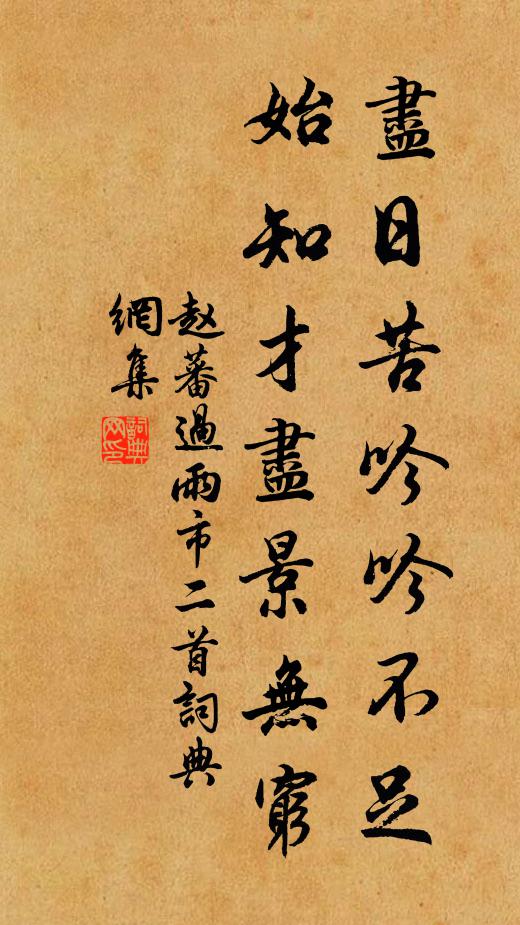 盡日苦吟吟不足
始知才盡景無窮
赵蕃過雨市二首詞典
網集
詞典
网印